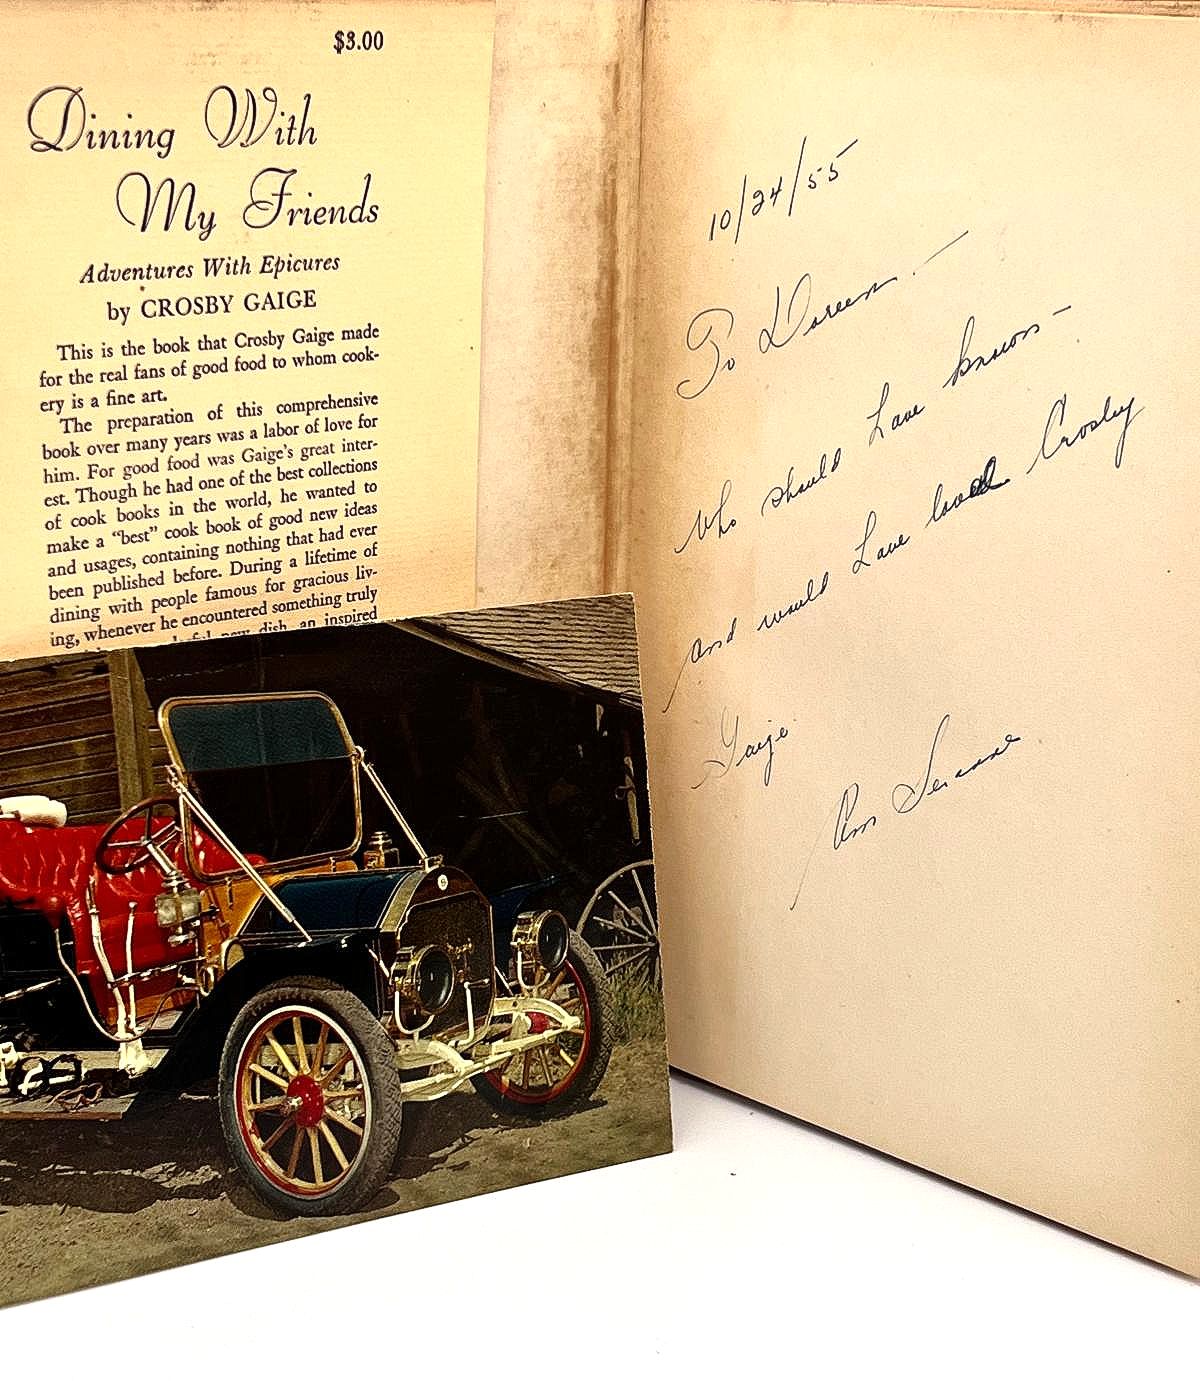 $3.00
Dining With
My Friends
Adventures With Epicures
by CROSBY GAIGE
This is the book that Crosby Gaige made
for the real fans of good food to whom cook-
ery is a fine art.
The preparation of this comprehensive
book over many years was a labor of love for
him. For good food was Gaige's great inter-
est. Though he had one of the best collections
of cook books in the world, he wanted to
make a "best" cook book of good new ideas
and usages, containing nothing that had ever
been published before. During a lifetime of
dining with people famous for gracious liv-
ing, whenever he encountered something truly
new dish, an inspired
10/24/55
To Doreen. —
Who should have known —
and would have loved Crosby
Gaige
Ann Seranne